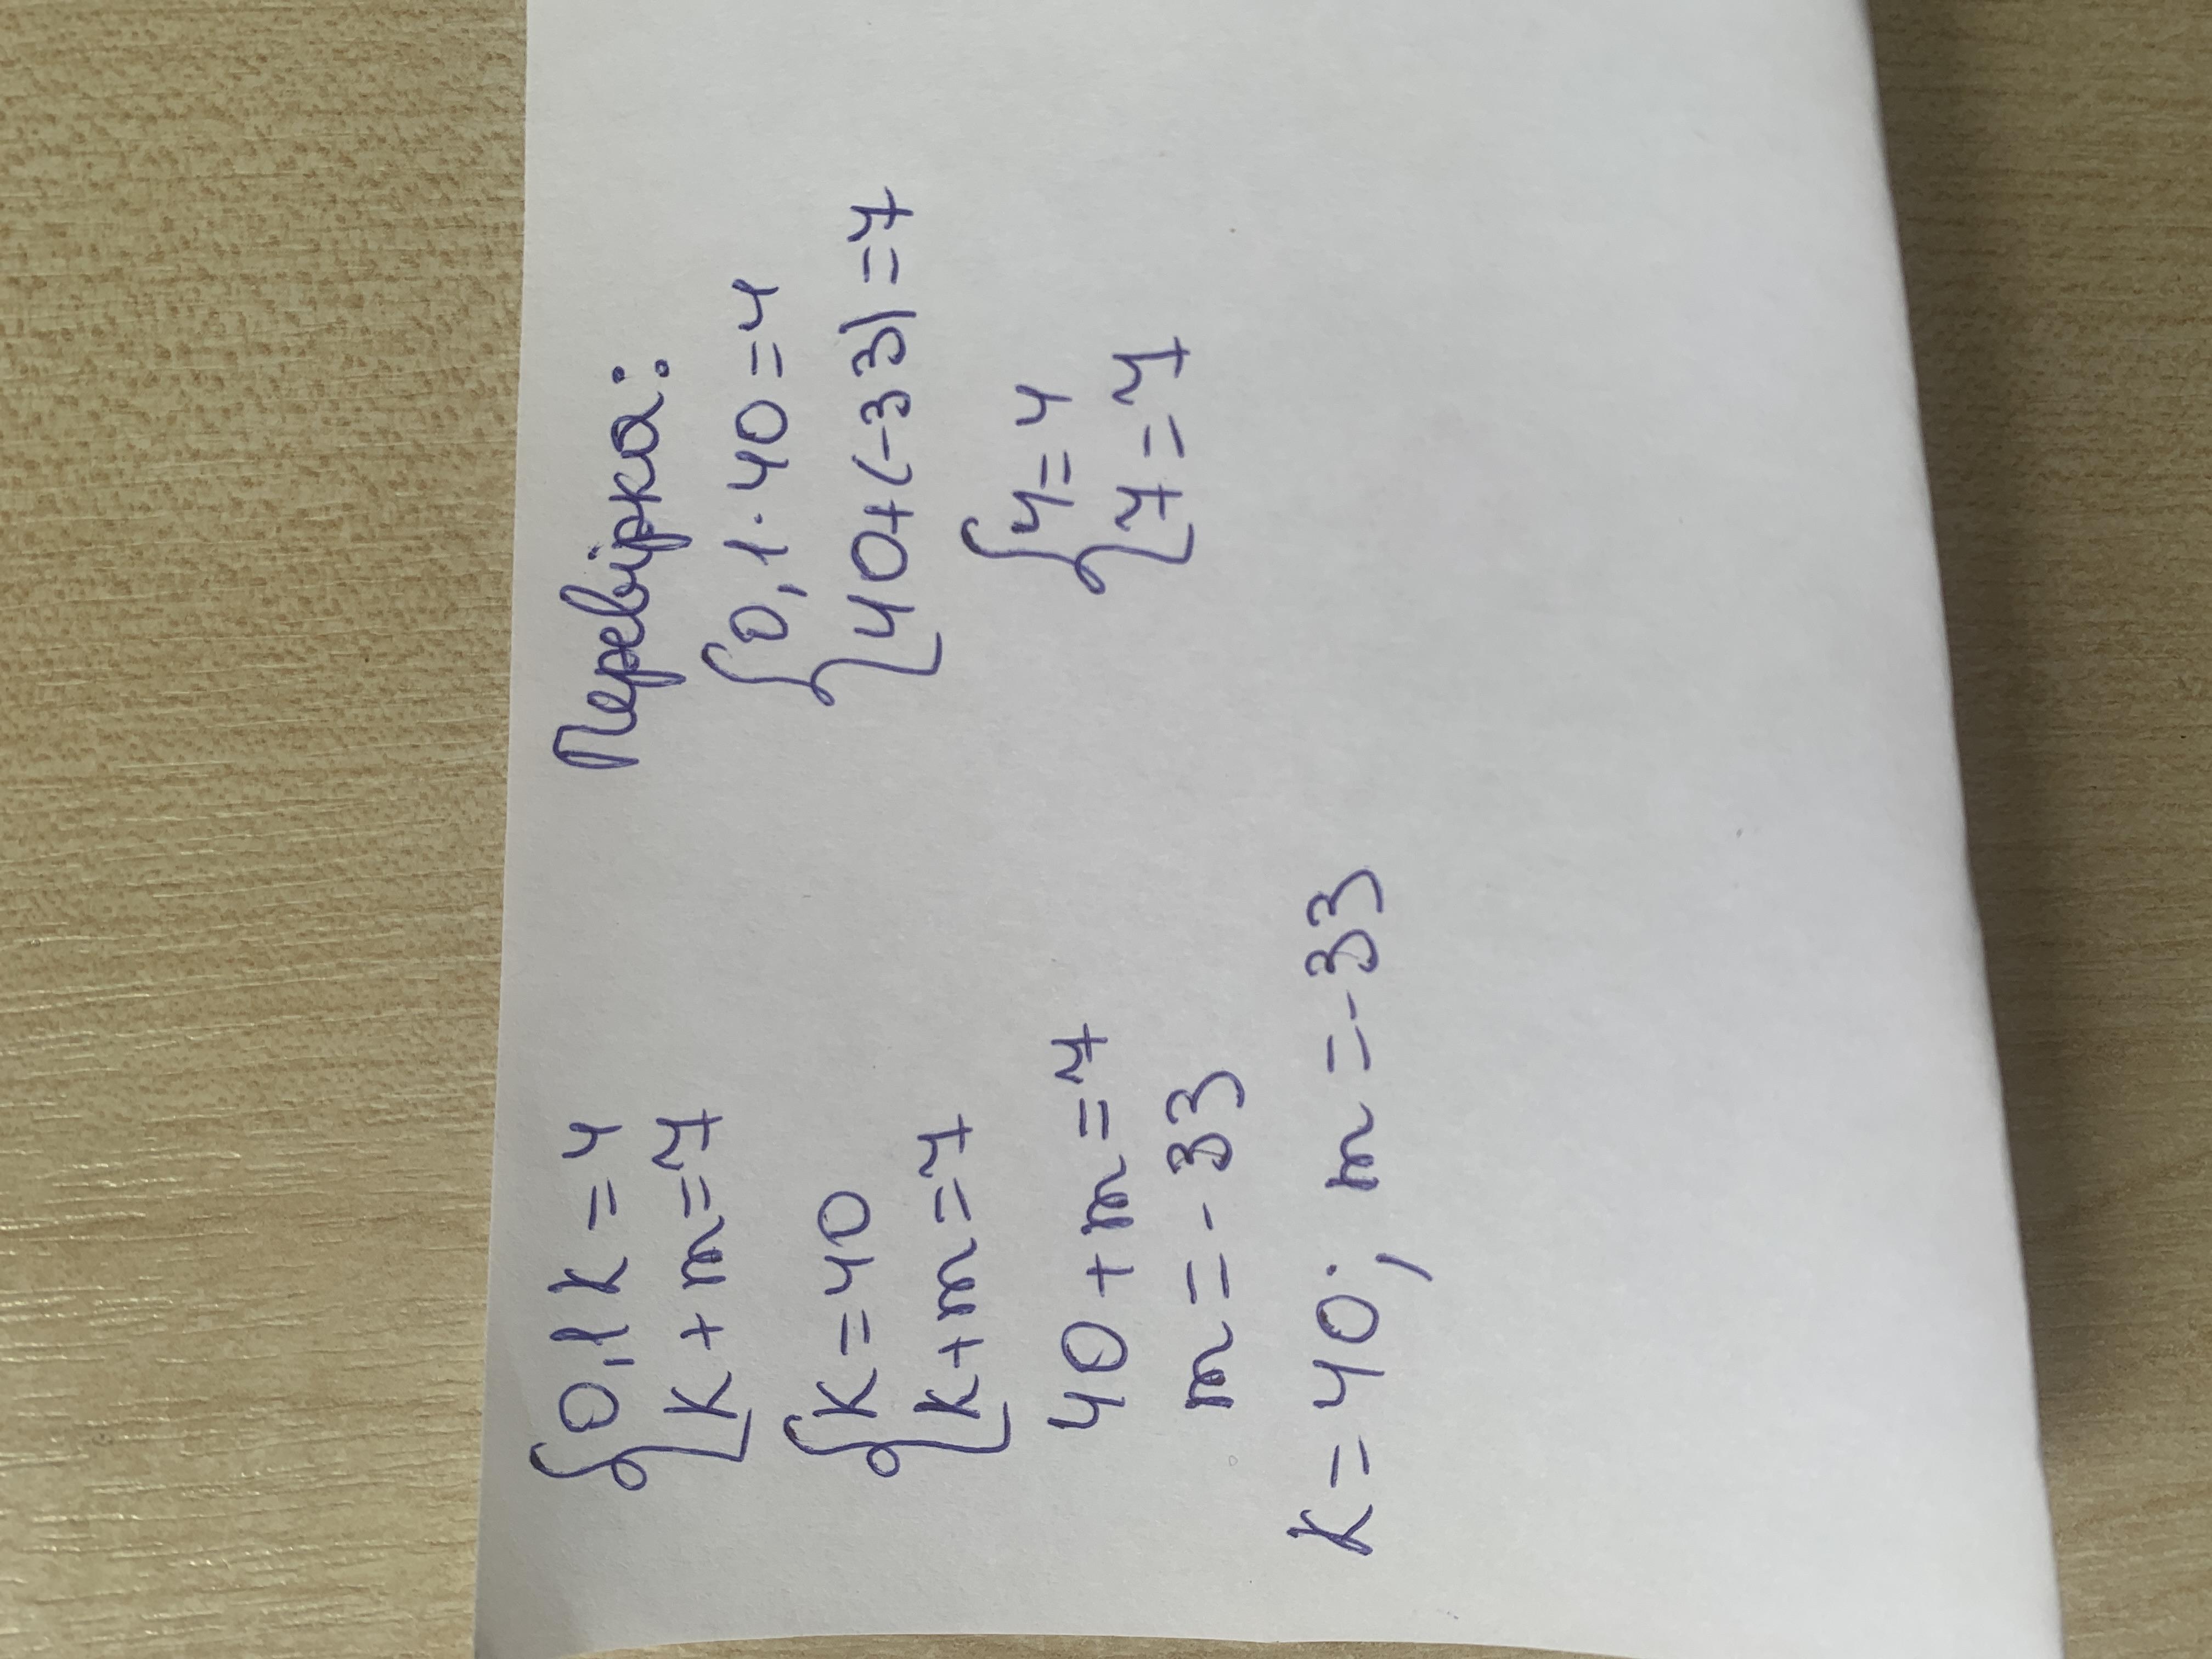 0,1k=4
k+m=7
k=40
k+m=7
40+m=7
m=-33
k=40; m=-33
Перевірка:
0,1·40=4
40+(-33)=7
4=4
7=7